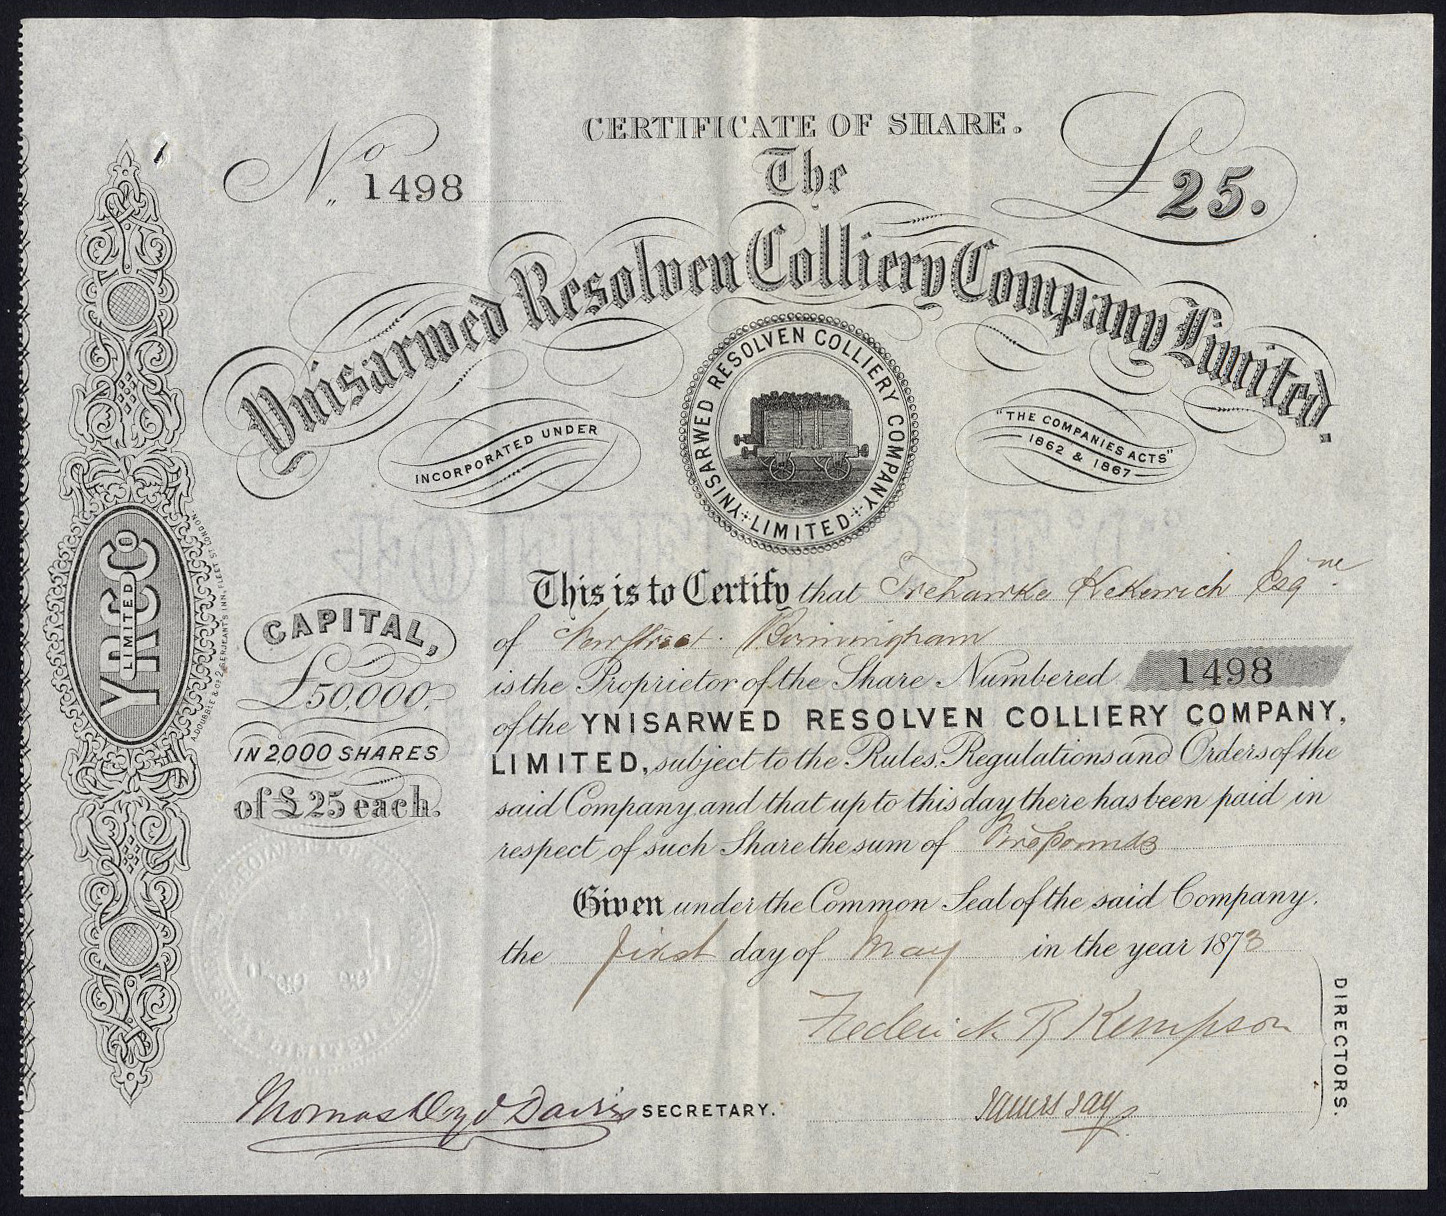 CERTIFICATE OF SHARE.
No 1498
£25.
The
Ynisarwed Resolven Colliery Company Limited.
YNISARWED RESOLVEN COLLIERY COMPANY
LIMITED
INCORPORATED UNDER
"THE COMPANIES ACTS"
1862 & 1867
YRC Co
LIMITED
CAPITAL,
£50,000.
IN 2,000 SHARES
of £25 each.
This is to Certify that Trehawke Kekewich Esqre
of New Street. Birmingham
is the Proprietor of the Share Numbered 1498
of the YNISARWED RESOLVEN COLLIERY COMPANY,
LIMITED, subject to the Rules, Regulations and Orders of the
said Company and that up to this day there has been paid in
respect of such Share the sum of pounds
Given under the Common Seal of the said Company.
the first day of May in the year 1873
Frederick R Kempson
DIRECTORS.
Thomas Lloyd Davis SECRETARY.
James Jay